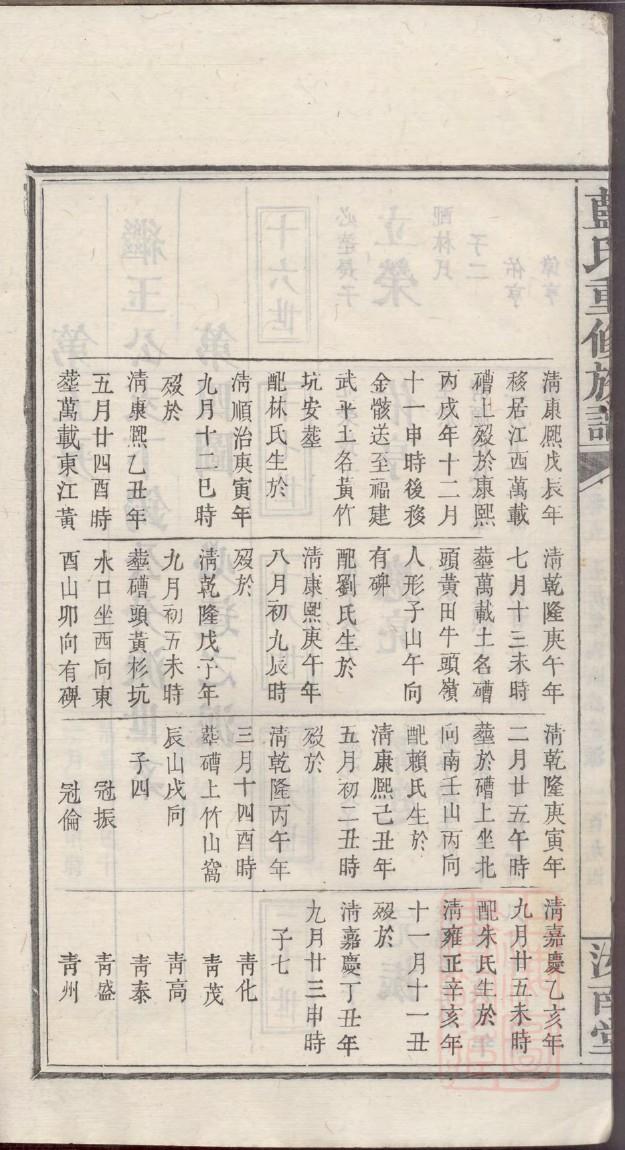 藍氏重修族譜
汝南堂
清康熙戊辰年
移居江西萬載
礌上歿於康熙
丙戌年十二月
十一申時後移
金骸送至福建
武平土名黃竹
坑安塟
配林氏生於
清順治庚寅年
九月十二巳時
歿於
清康熙乙丑年
五月廿四酉時
塟萬載東江黃
清乾隆庚午年
七月十三未時
塟萬載土名礌
頭黃田牛頭嶺
人形子山午向
有碑
配劉氏生於
清康熙庚午年
八月初九辰時
歿於
清乾隆戊子年
九月初五未時
塟礌頭黃杉坑
水口坐西向東
酉山卯向有碑
清乾隆庚寅年
二月廿五午時
塟於礌上坐北
向南壬山丙向
配賴氏生於
清康熙己丑年
五月初二丑時
歿於
清乾隆丙午年
三月十四酉時
葬礌上竹山窩
辰山戌向
子四
冠振
冠倫
清嘉慶乙亥年
九月廿五未時
配朱氏生於
清雍正辛亥年
十一月十一丑
歿於
清嘉慶丁丑年
九月廿三申時
子七
青化
青茂
青高
青泰
青盛
青州